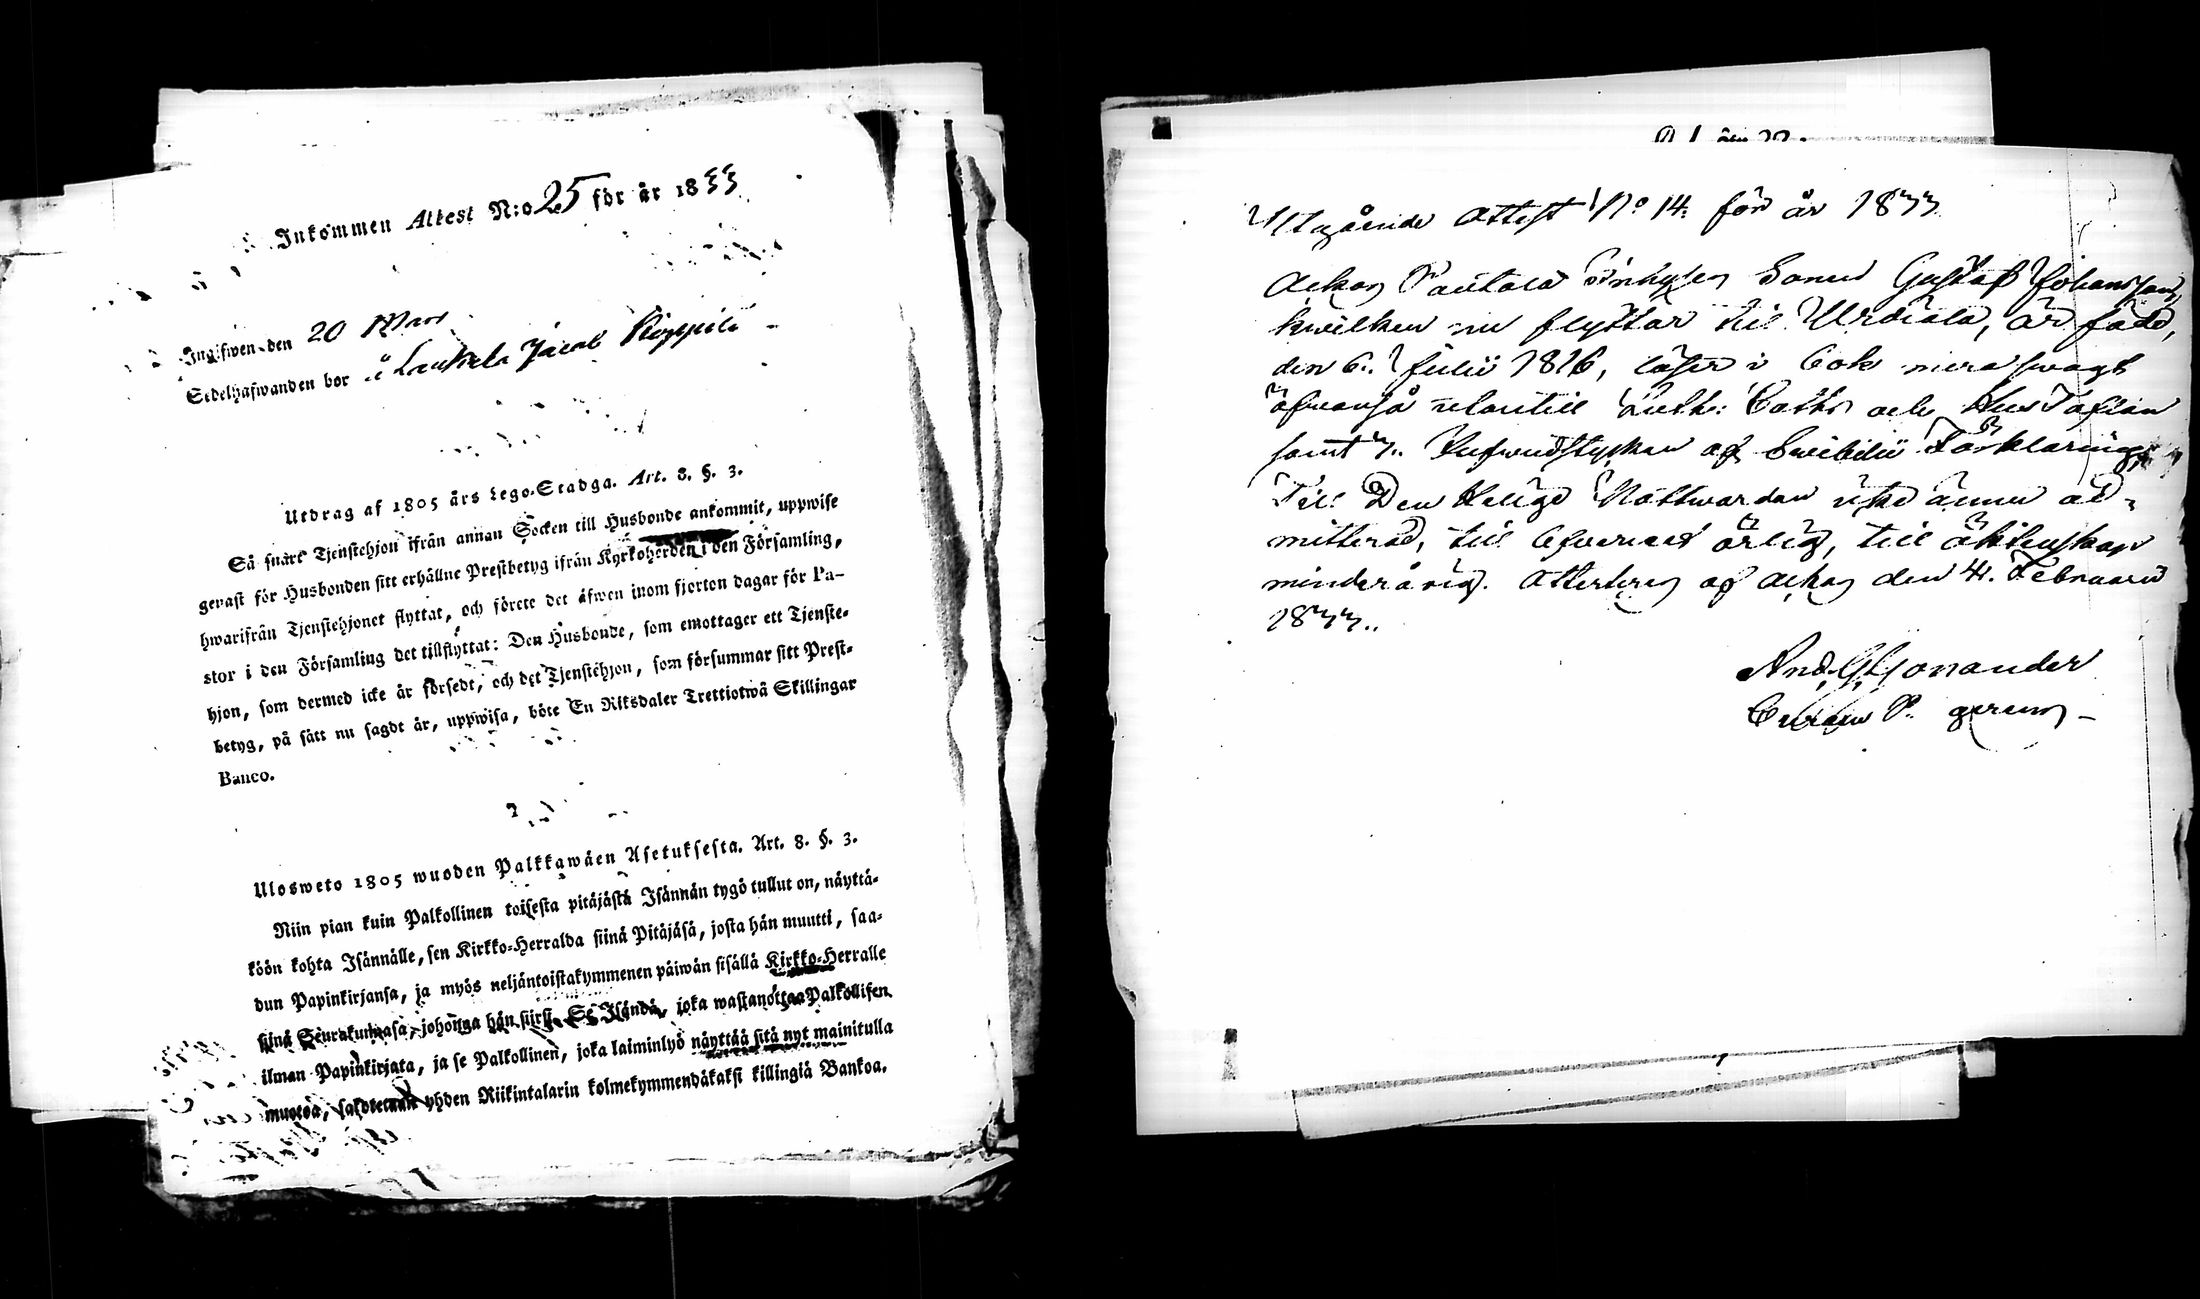 Inkommen Attest N:o 25 för år 1833
Ingifwen den 20 Mars
Sedelhafwanden bor i Laukela Jacob Köppilä
Utdrag af 1805 års Lego-Stadga. Art. 8. §. 3.
Så snart Tjenstehjon ifrån annan Socken till Husbonde ankommit, uppwise
genast för Husbonden sitt erhållne Prestbetyg ifrån Kyrkoherden i den Församling,
hwarifrån Tjenstehjonet flyttat, och förete det äfwen inom fjorton dagar för Pa-
stor i den Församling det tillflyttat: Den Husbonde, som emottager ett Tjenste-
hjon, som dermed icke är försedt, och det Tjenstehjon, som försummar sitt Prest-
betyg, på sätt nu sagdt är, uppwisa, böte En Riksdaler Trettiotwå Skillingar
Banco.
Ulosweto 1805 wuoden Palkkawäen Asetuksesta. Art. 8. §. 3.
Niin pian kuin Palkollinen toisesta pitäjästä Isännän tygö tullut on, näyttä-
köön kohta Isännälle, sen Kirkko-Herralda siinä Pitäjäsä, josta hän muutti, saa-
dun Papinkirjansa, ja myös neljäntoistakymmenen päiwän sisällä Kirkko-Herralle
siinä Seurakunnasa, johonga hän siirsi. Se Isändä, joka wastanottaa Palkollisen
ilman Papinkirjata, ja se Palkollinen, joka laiminlyö näyttää sitä nyt mainitulla
muotoa, sakotetaan yhden Riikintalarin kolmekymmendäkaksi killingiä Bankoa.
Utgående Attest No 14. för år 1833
Sonen Gustaf Johansson,
hwilken nu flyttar til Urdiala, är född,
den 6. Julii 1816, läser i bok mera swagt
äfwenså utantill Luth: Cathes och Hus Taflan
samt 3. Hufwudstycken af Swibelii Förklaring,
Till Den Helige Nattwarden icke ännu ad-
mitterad, till lefwernet ärlig, till äktenskap
minderårig. Attesteras af Ackas den 4. Februarii
1833.
And. G. Gonander